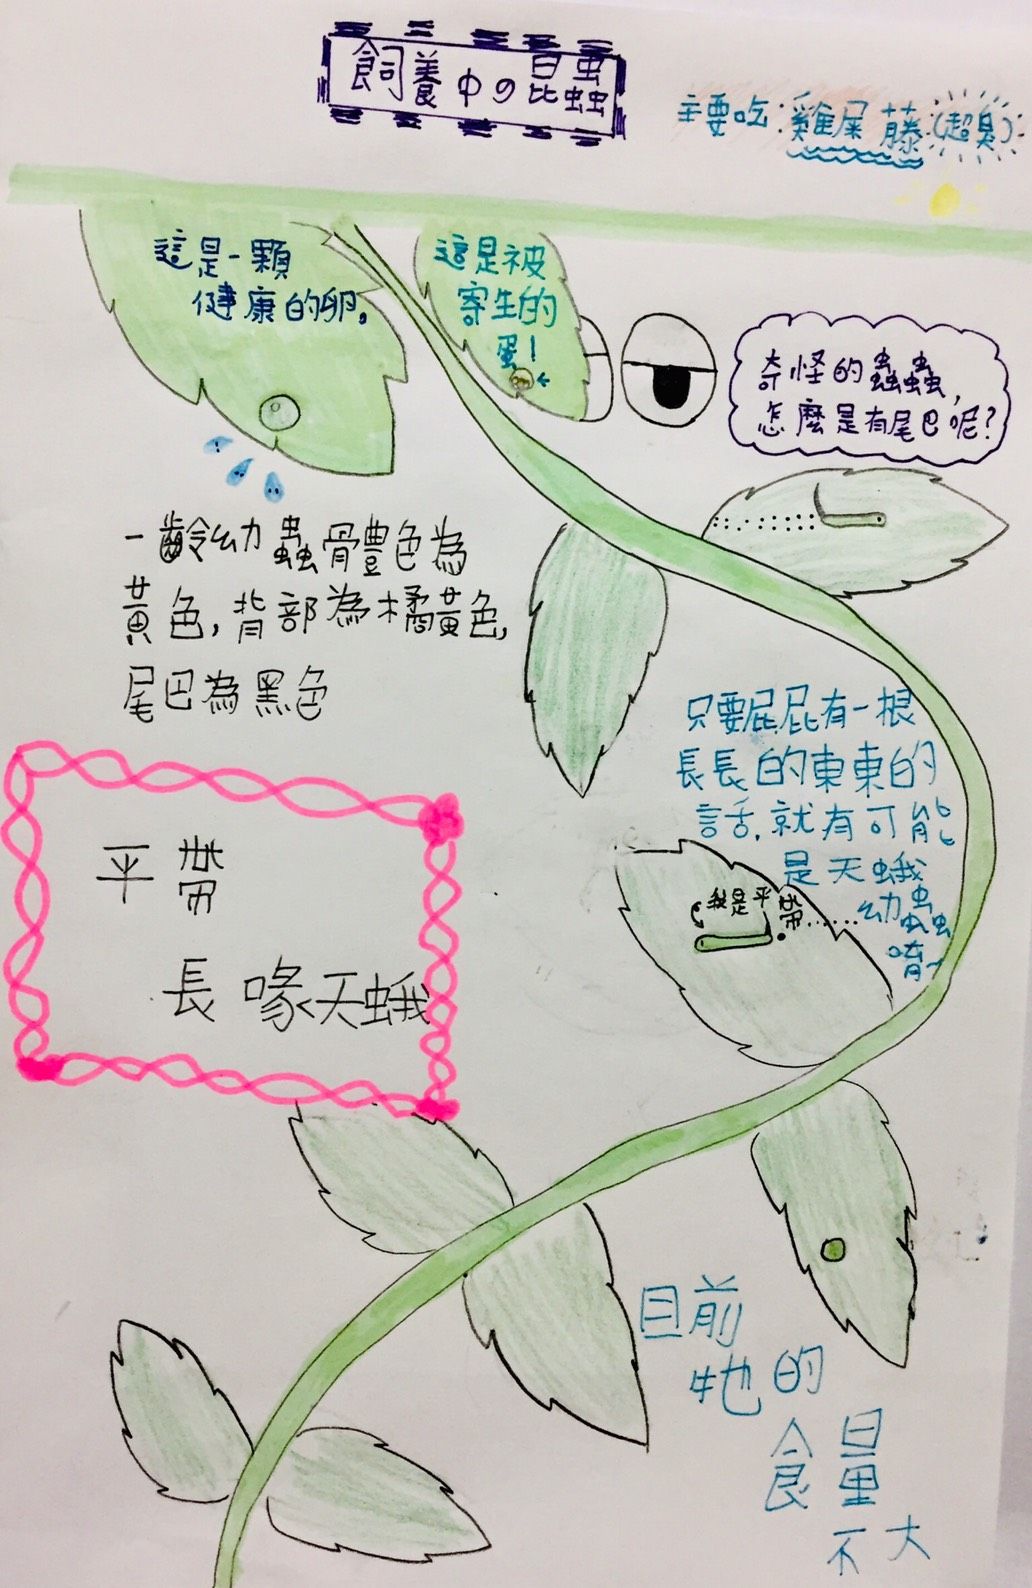 飼養中の昆蟲
主要吃:雞屎藤(超臭)
這是一顆
健康的卵。
這是被
寄生的
蛋!
奇怪的蟲蟲,
怎麼是有尾巴呢?
一齡幼蟲體色為
黃色,背部為橘黃色,
尾巴為黑色
只要屁屁有一根
長長的東東的
話,就有可能
是天蛾
幼蟲
唷~
我是平帶......
平帶
長喙天蛾
目前
牠的
食量
不大